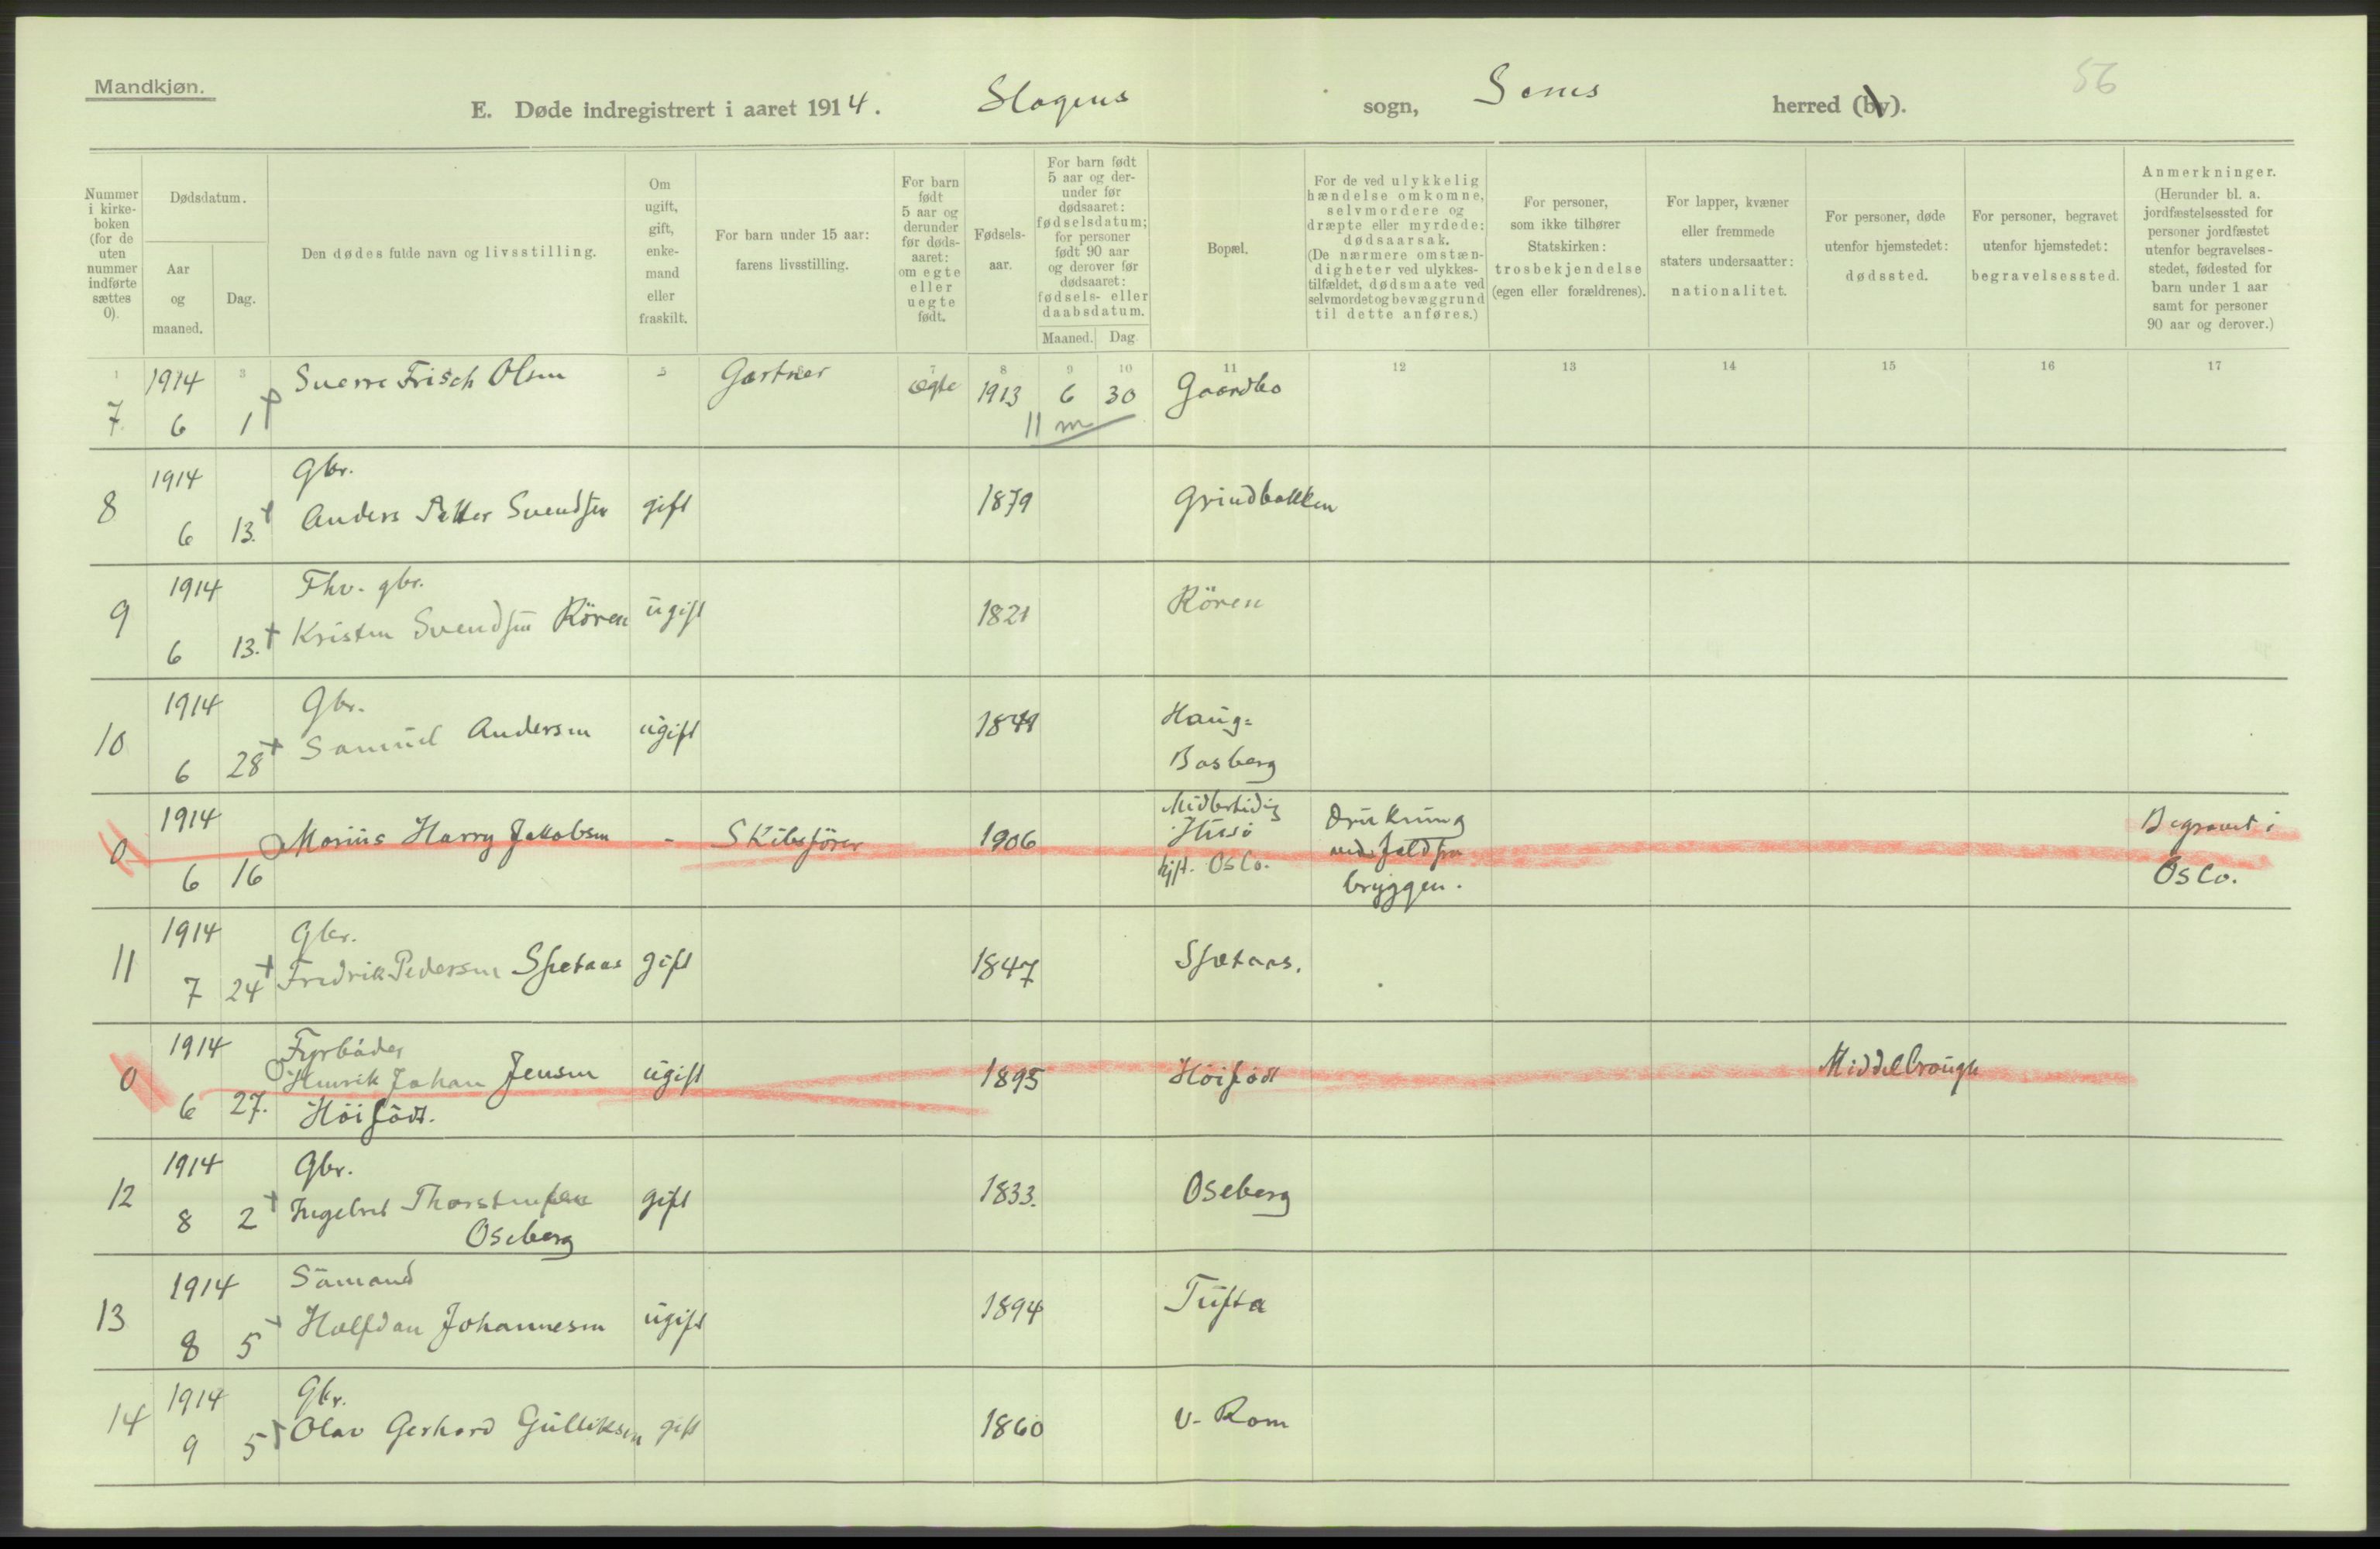 Mandkjøn.
56
E. Døde indregistrert i aaret 1914. Slagens sogn, Sems herred (by).
Nummer i kirke-boken (for de uten nummer indførte sættes 0).
Dødsdatum.
Aar og maaned.
Dag.
Den dødes fulde navn og livsstilling.
Om ugift, gift, enke-mand eller fraskilt.
For barn under 15 aar: farens livsstilling.
For barn født 5 aar og derunder før døds-aaret: om egte eller uegte født.
Fødsels-aar.
For barn født 5 aar og der-under før dødsaaret: fødselsdatum; for personer født 90 aar og derover før dødsaaret: fødsels- eller daabsdatum.
Maaned.
Dag
Bopæl.
For de ved ulykkelig hændelse omkomne, selvmordere og dræpte eller myrdede: dødsaarsak. (De nærmere omstæn-digheter ved ulykkes-tilfældet, dødsmaate ved selvmordet og bevæggrund til dette anføres.)
For personer, som ikke tilhører Statskirken: trosbekjendelse (egen eller forældrenes).
For lapper, kvæner eller fremmede staters undersaatter: nationalitet.
For personer, døde utenfor hjemstedet: dødssted.
For personer, begravet utenfor hjemstedet: begravelsessted.
Anmerkninger. (Herunder bl. a. jordfæstelsessted for personer jordfæstet utenfor begravelses-stedet, fødested for barn under 1 aar samt for personer 90 aar og derover.)
1 3 5 7 8 9 10 11 12 13 14 15 16 17
1914 Sverre Frisch Olsen Gartner ægte 1913 6 30 Gaardbo
7 6 1 11 m
1914 Gbr.
8 6 13. Anders Petter Svendsen gift 1879 Grindbakken
1914 Fhv. gbr.
9 6 13. Kristen Svendsen Rören ugift 1821 Rören
1914 Gbr. Haug-
10 6 28 Samuel Andersen ugift 1849 Basberg
1914 Midlertidig Drukning
0 Marius Harry Jakobsen - Skibsförer 1906 Husö ved fald fra Begravet i
6 16 hjst. Oslo. bryggen. Oslo.
1914 Gbr.
11 7 24 Fredrik Pedersen Spetaas gift 1847 Spetaas.
1914 Fyrböder
0 Henrik Johan Jensen ugift 1895 Höifödt Middelbrough
6 27. Höifödt.
1914 Gbr.
12 8 2 Ingebret Thorstensen gift 1833. Oseberg
Oseberg
1914 Sömand
13 8 5 Halfdan Johannesen ugift 1894 Tufta
1914 Gbr.
14 9 5 Olav Gerhard Gulliksen gift 1860 V. Rom